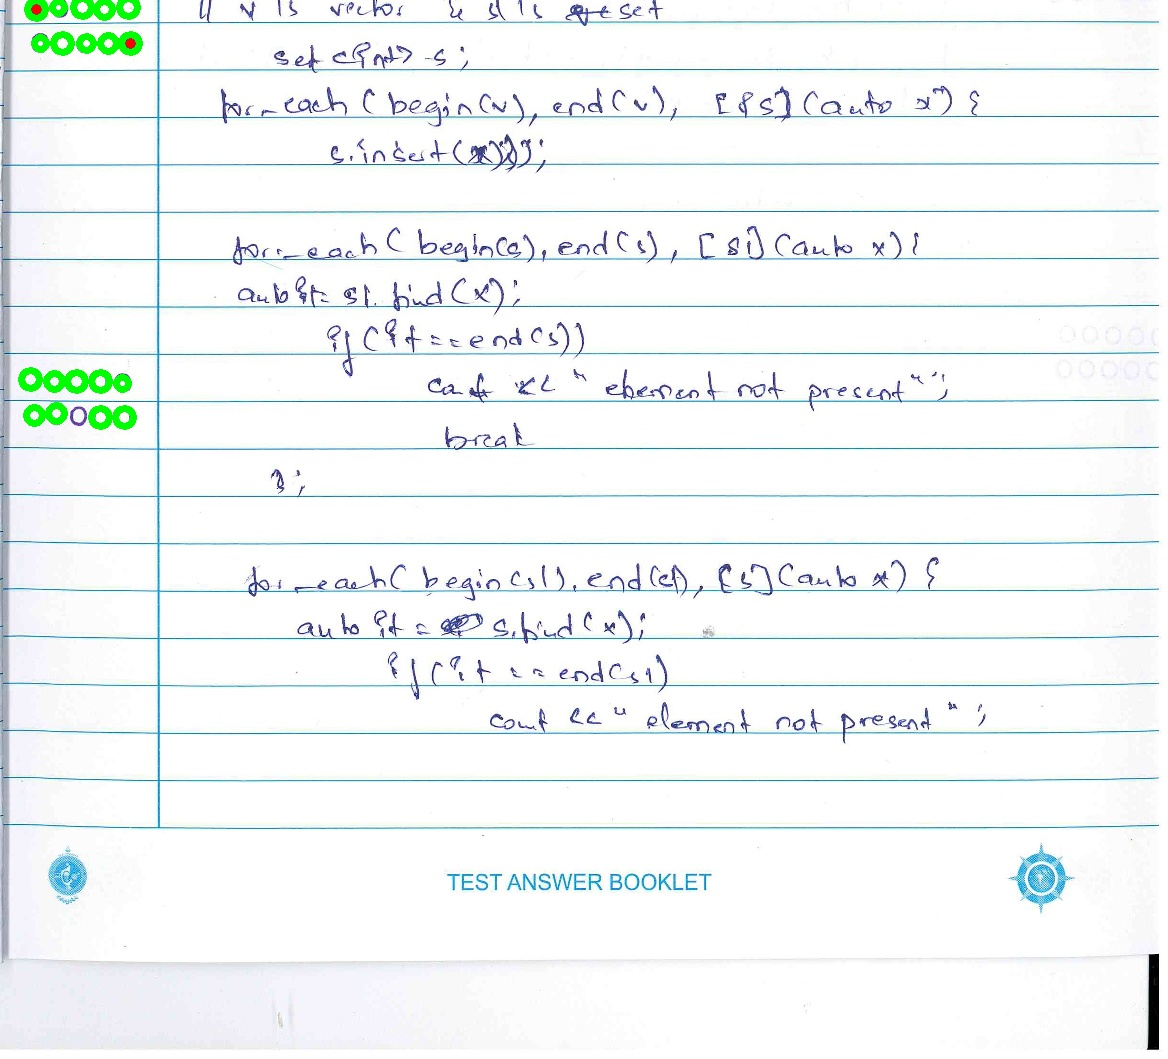 // v is vector & s1 is set
set <int> s;
for_each (begin(v), end(v), [&s] (auto x) {
s.insert(x)});
for_each ( begin(s), end(s), [s1] (auto x) {
auto it = s1.find(x);
if (it == end(s))
cout << " element not present" ;
break
};
for_each ( begin(s1), end(s1), [s] (auto x) {
auto it = s.find(x);
if (it == end(s1)
cout << " element not present " ;
TEST ANSWER BOOKLET